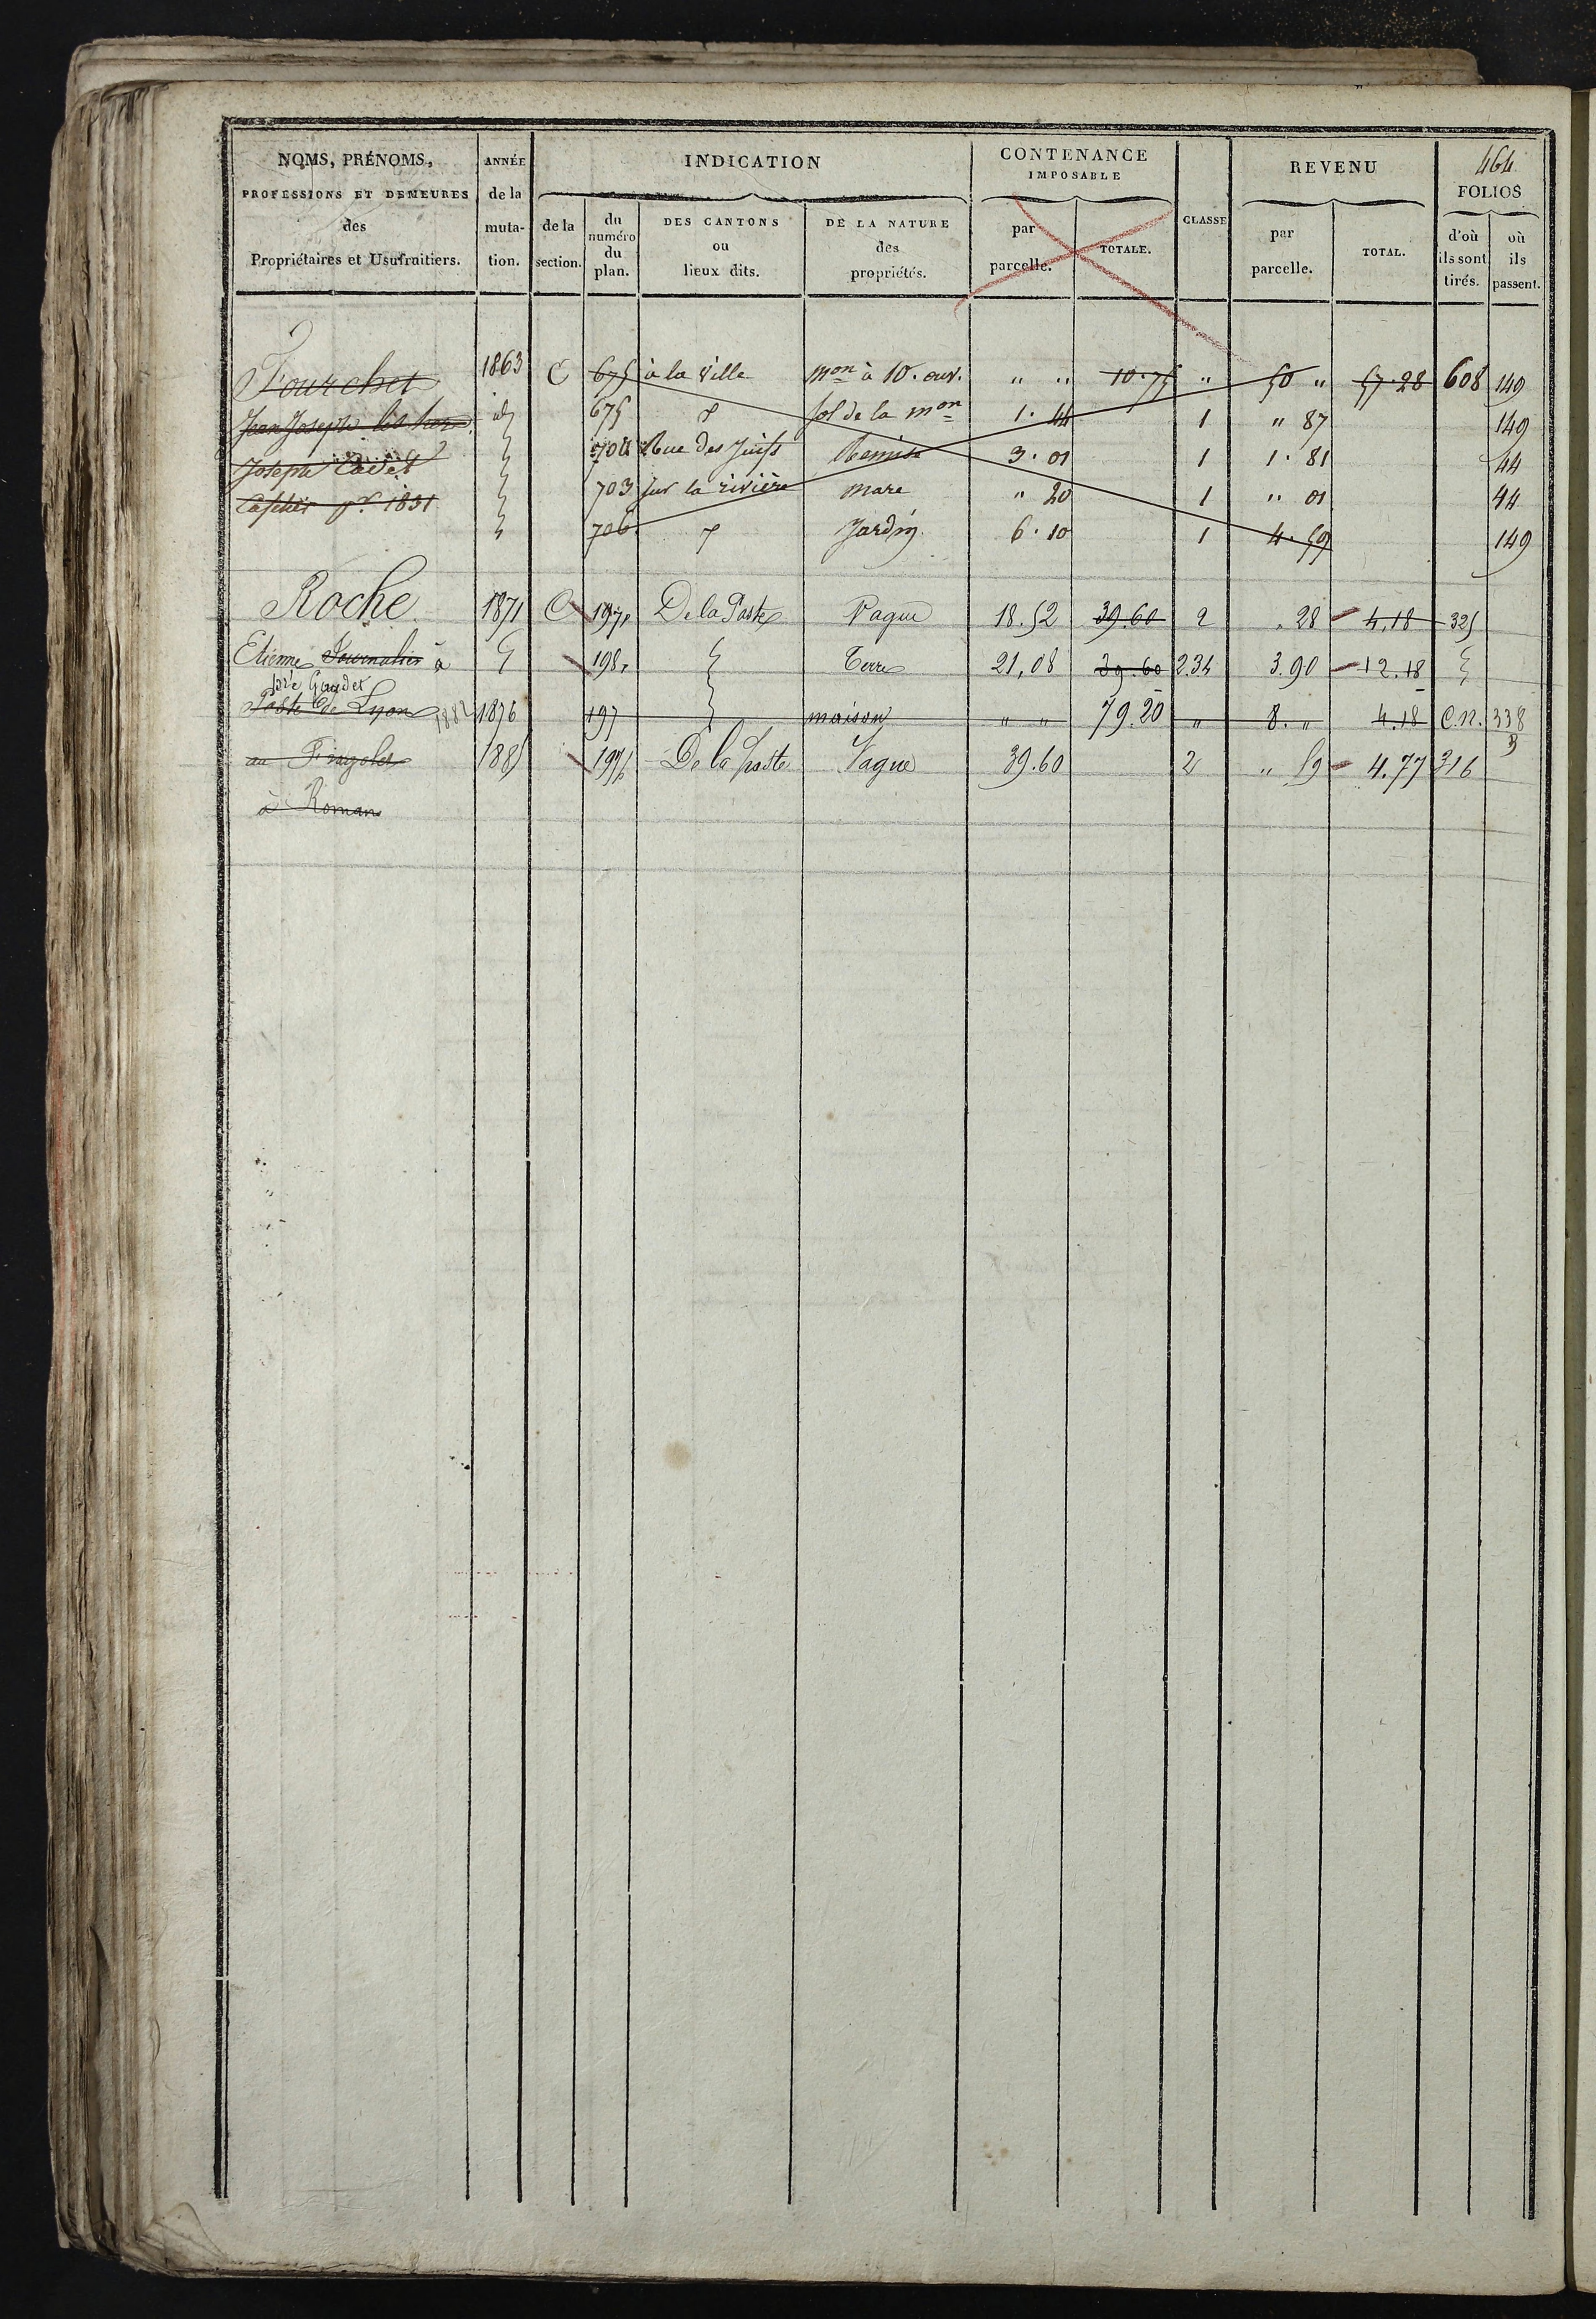 464
NOMS, PRÉNOMS, PROFESSIONS ET DEMEURES des Propriétaires et Usufruitiers.
ANNÉE de la mutation.
INDICATION
de la section.
du numéro du plan.
DES CANTONS ou lieux dits.
DE LA NATURE des propriétés.
CONTENANCE IMPOSABLE
par parcelle.
TOTALE.
CLASSE
REVENU
par parcelle.
TOTAL.
FOLIOS
d'où ils sont tirés.
où ils passent.
Fourchet 1863 C 675 à la Ville mon à 10. ouv. " " 10.75 " 50 " 57.28 608 149
Jean Joseph id 675 sol de la mon 1. 44 1 " 87 149
Joseph Cadet 704 Rue des Juifs Remise 3. 01 1 1. 81 44
1831 703 sur la rivière mare " 20 1 " 01 44
706 Jardin 6. 10 1 4. 59 149
Roche 1871 C 197 De la Poste Vague 18.52 39.60 2 . 28 4.18 325
Etienne Journalier à 198 Terre 21,08 39.60 2.34 3.90 12.18
Gaudet
Poste de Lyon 1882 1876 197 maison " " 79.20 " 8. " 4.18 C.N. 338
au 1885 197 De la poste Vague 39.60 2 " 59 4.77 316
à Romans